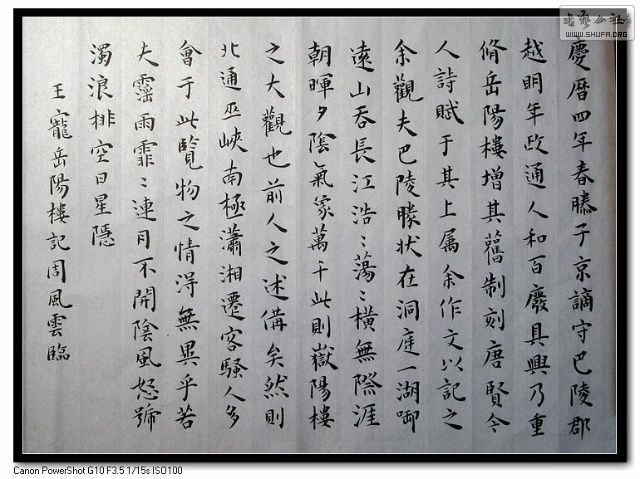 慶曆四年春滕子京謫守巴陵郡
越明年政通人和百廢具興乃重
脩岳陽樓增其舊制刻唐賢今
人詩賦于其上属余作文以記之
余觀夫巴陵勝狀在洞庭一湖啣
遠山吞長江浩〻蕩〻橫無際涯
朝暉夕陰氣象萬千此則嶽陽樓
之大觀也前人之述備矣然則
北通巫峽南極瀟湘遷客騷人多
會于此覽物之情得無異乎若
夫霪雨霏〻連月不開陰風怒號
濁浪排空日星隱
王寵岳陽樓記周風雲臨
WWW.SHUFA.ORG
Canon PowerShot G10 F3.5 1/15s ISO100